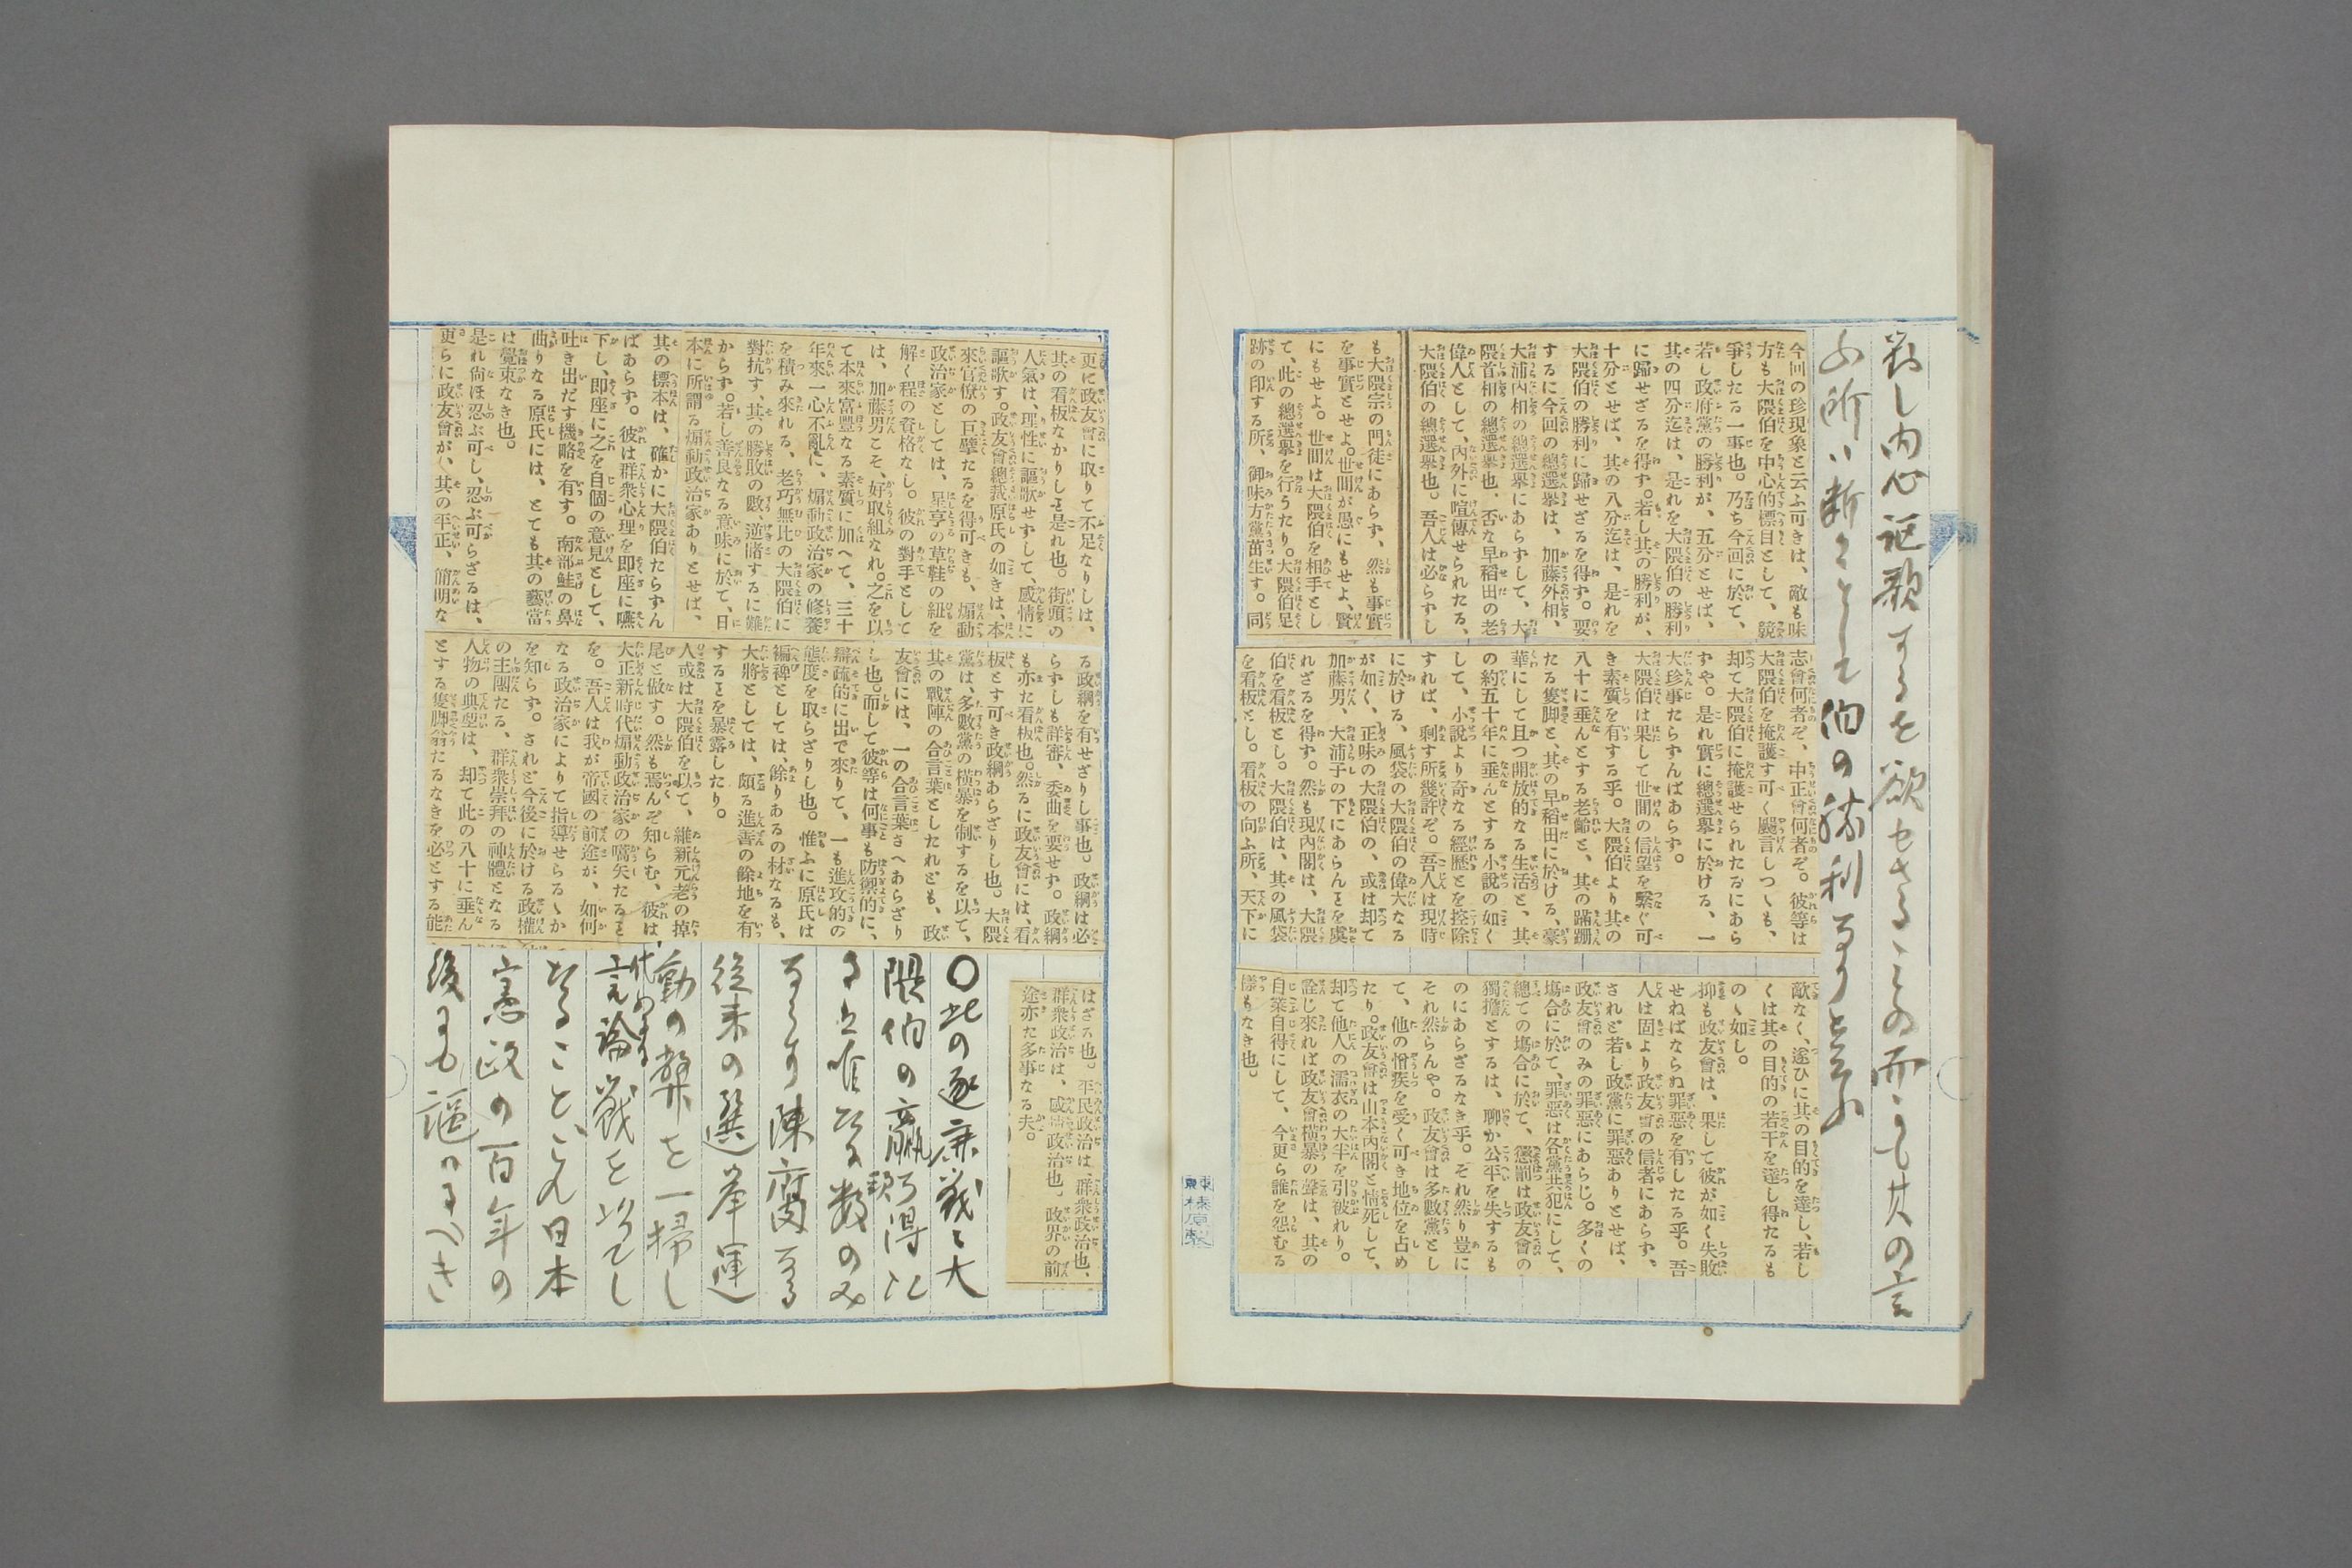 對し内心謳歌するを欲せざることの而かも其の言
ふ所は斷々として伯の勝利なりと云ふ
今回の珍現象と云ふ可きは、敵も味
方も大隈伯を中心的標目として、競
爭したる一事也。乃ち今回に於て、
若し政府黨の勝利が、五分とせば、
其の四分迄は、是れを大隈伯の勝利
に歸せざるを得ず。若し其の勝利が、
十分とせば、其の八分迄は、是れを
大隈伯の勝利に歸せざるを得ず。要
するに今回の總選擧は、加藤外相、
大浦内相の總選擧にあらずして、大
隈首相の總選擧也、否な早稻田の老
偉人として、内外に喧傳せられたる、
大隈伯の總選擧也。吾人は必らずし
も大隈宗の門徒にあらず、然も事實
を事實とせよ。世間が愚にもせよ、賢
にもせよ。世間は大隈伯を相手とし
て、此の總選擧を行うたり。大隈伯足
跡の印する所、御味方黨簇生す。同
志會何者ぞ、中正會何者ぞ。彼等は
大隈伯を掩護す可く颺言しつゝも、
却て大隈伯に掩護せられたるにあら
ずや。是れ實に總選擧に於ける、一
大珍事たらずんばあらず。
大隈伯は果して世間の信望を繋ぐ可
き素質を有する乎。大隈伯より其の
八十に垂んとする老齡と、其の蹣跚
たる隻脚と、其の早稻田に於ける、豪
華にして且つ開放的なる生活と、其
の約五十年に垂んとする小說の如く
して、小說より奇なる經歷とを控除
すれば、剩す所幾許ぞ。吾人は現時
に於ける、風袋の大隈伯の偉大なる
が如く、正味の大隈伯の、或は却て
加藤男、大浦子の下にあらんとを虞
れざるを得ず。然も現内閣は、大隈
伯を看板とし。大隈伯は、其の風袋
を看板とし。看板の向ふ所、天下に
敵なく、遂ひに其の目的を達し、若し
くは其の目的の若干を達し得たるも
のゝ如し。
抑も政友會は、果して彼が如く失敗
せねばならぬ罪惡を有したる乎。吾
人は固より政友會の信者にあらず、
されど若し政黨に罪惡ありとせば、
政友會のみの罪惡にあらじ。多くの
塲合に於て、罪惡は各黨共犯にして、
總ての塲合に於て、懲罰は政友會の
獨擔とするは、聊か公平を失するも
のにあらざるなき乎。それ然り豈に
それ然らんや。政友會は多數黨とし
て、他の憎疾を受く可き地位を占め
たり。政友會は山本内閣と情死して、
却て他人の濡衣の大半を引被れり。
詮じ來れば政友會橫暴の聲は、其の
自業自得にして、今更ら誰を怨むる
樣もなき也。
東京 榛原製
更に政友會に取りて不足なりしは、
其の看板なかりしも是れ也。街頭の
人氣は、理性に謳歌せずして、感情に
謳歌す。政友會總裁原氏の如きは、本
來官僚の巨擘たるを得可きも、煽動
政治家としては、星亨の草鞋の紐を
解く程の資格なし。彼の對手として
は、加藤男こそ、好取組なれ。之を以
て本來富豐なる素質に加へて、三十
年來一心不亂に、煽動政治家の修養
を積み來れる、老巧無比の大隈伯に
對抗す、其の勝敗の數、逆睹するに難
からず。若し善良なる意味に於て、日
本に所謂る煽動政治家ありとせば、
其の標本は、確かに大隈伯たらずん
ばあらず。彼は群衆心理を即座に嚥
下し、即座に之を自個の意見として、
吐き出だす機略を有す。南部鮭の鼻
曲りなる原氏には、とても其の藝當
は覺束なき也。
是れ尙ほ忍ぶ可し、忍ぶ可らざるは、
更らに政友會が、其の平正、簡明な
る政綱を有せざりし事也。政綱は必
らずしも詳審、委曲を要せず。政綱
も亦た看板也。然るに政友會には、看
板とす可き政綱あらざりし也。大隈
黨は、多數黨の橫暴を制するを以て、
其の戰陣の合言葉としたれども、政
友會には、一の合言葉さへあらざり
し也。而して彼等は何事も防禦的に、
辯疏的に出で來りて、一も進攻的の
態度を取らざりし也。惟ふに原氏は
褊裨としては、餘りあるの材なるも、
大將としては、頗る進善の餘地を有
するとを暴露したり。
人或は大隈伯を以て、維新元老の掉
尾と做す。然も焉んぞ知らむ、彼は
大正新時代煽動政治家の嚆矢たると
を。吾人は我が帝國の前途が、如何
なる政治家によりて指導せらるゝか
を知らず。されど今後に於ける政權
の主團たる、群衆崇拜の神體となる
人物の典型は、却て此の八十に垂ん
とする隻脚翁たるなきを必とする能
はざる也。平民政治は、群衆政治也、
群衆政治は、感情政治也。政界の前
途亦た多事なる夫。
〇此の逐鹿戰と大
隈伯の贏ち得た
る立唯だ數のみ
ならず陳腐なる
從來の選擧運
動の弊を一掃し
代ふるに
言論戰を以てし
たること、これ日本
憲政の百年の
後にも謳はるべき